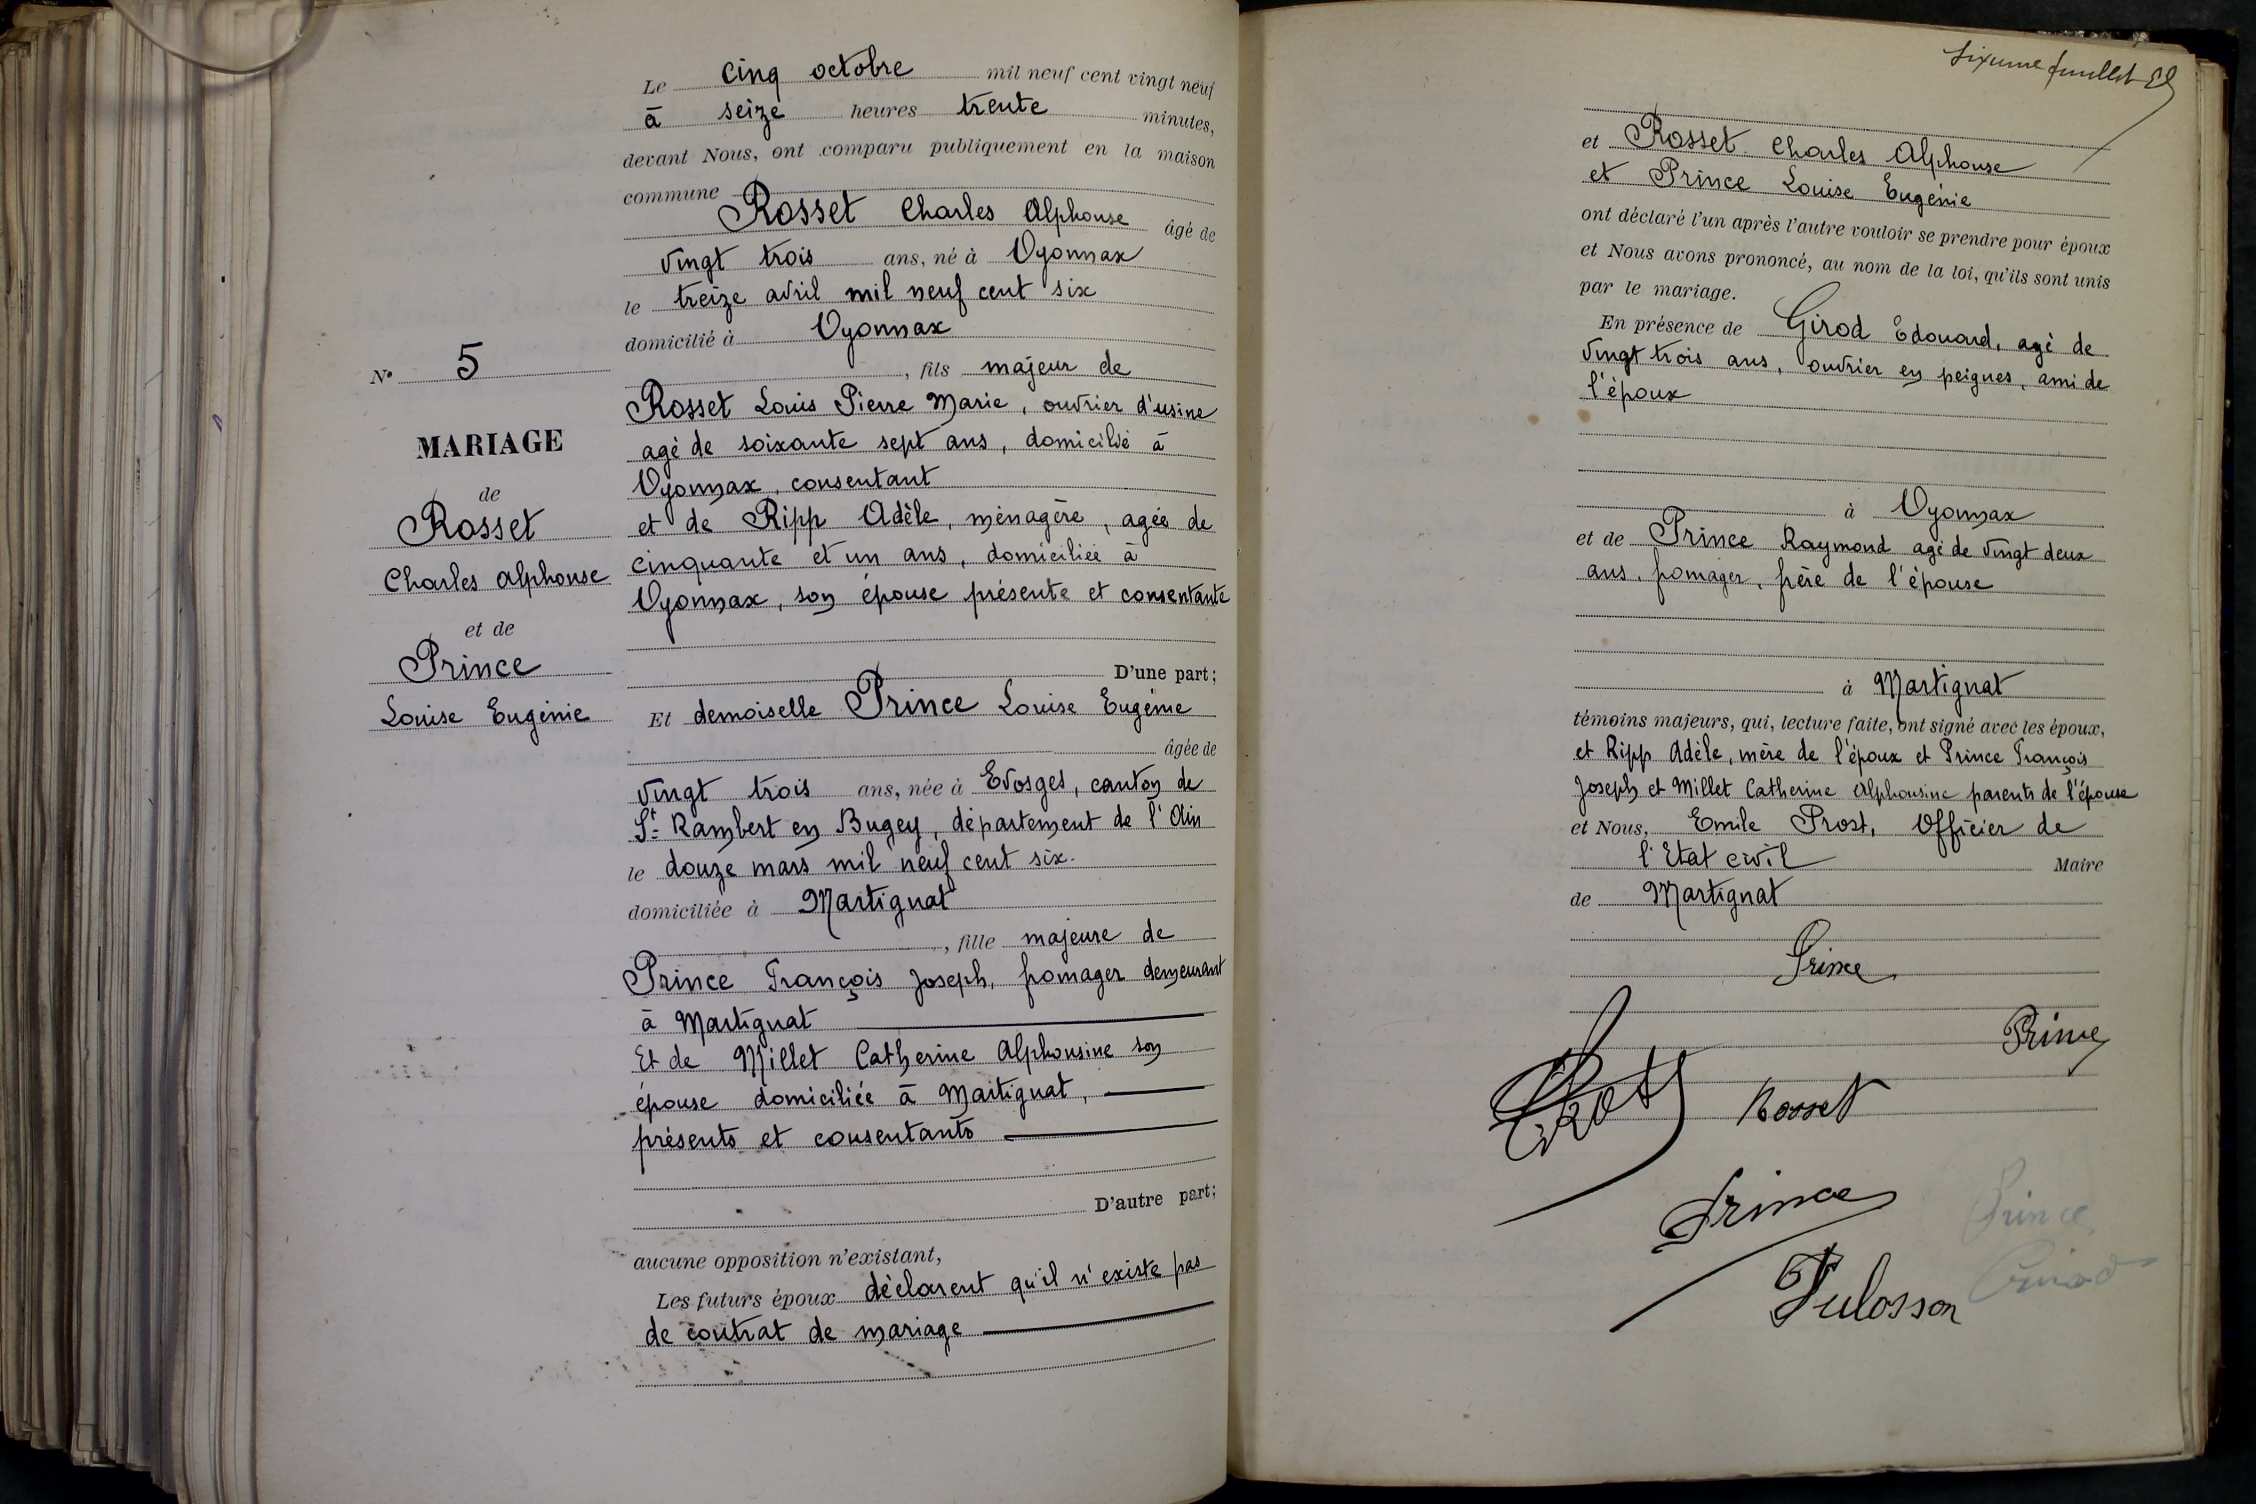 Le cinq octobre mil neuf cent vingt neuf
à seize heures trente minutes,
devant Nous, ont comparu publiquement en la maison
commune
Rosset Charles Alphonse âgé de
vingt trois ans, né à Oyonnax
le treize avril mil neuf cent six
domicilié à Oyonnax
, fils majeur de
Rosset Louis Pierre Marie, ouvrier d'usine
agé de soixante sept ans, domicilié à
Oyonnax, consentant
et de Ripp Adèle, ménagère, agée de
cinquante et un ans, domiciliée à
Oyonnax, son épouse présente et consentante
D'une part;
Et demoiselle Prince Louise Eugénie
âgée de
vingt trois ans, née à Evosges, canton de
St Rambert en Bugey, département de l'Ain
le douze mars mil neuf cent six.
domiciliée à Martignat
, fille majeure de
Prince François Joseph, fromager demeurant
à Martignat
Et de Millet Catherine Alphonsine son
épouse domiciliée à Martignat,
présents et consentants
D'autre part;
aucune opposition n'existant,
Les futurs époux déclarent qu'il n'existe pas
de contrat de mariage
N° 5
MARIAGE
de
Rosset
Charles Alphonse
et de
Prince
Louise Eugénie
Sixième feuillet
et Rosset Charles Alphonse
et Prince Louise Eugénie
ont déclaré l'un après l'autre vouloir se prendre pour époux
et Nous avons prononcé, au nom de la loi, qu'ils sont unis
par le mariage.
En présence de Girod Edouard, agé de
vingt trois ans, ouvrier en peignes, ami de
l'époux
à Oyonnax
et de Prince Raymond agé de vingt deux
ans, fromager, frère de l'épouse
à Martignat
témoins majeurs, qui, lecture faite, ont signé avec les époux,
et Ripp Adèle, mère de l'époux et Prince François
Joseph et Millet Catherine Alphonsine parents de l'épouse
et Nous, Emile Prost, Officier de
l'Etat civil Maire
de Martignat
Prince
Prince
Prost Rosset
Prince
Prince
Girod